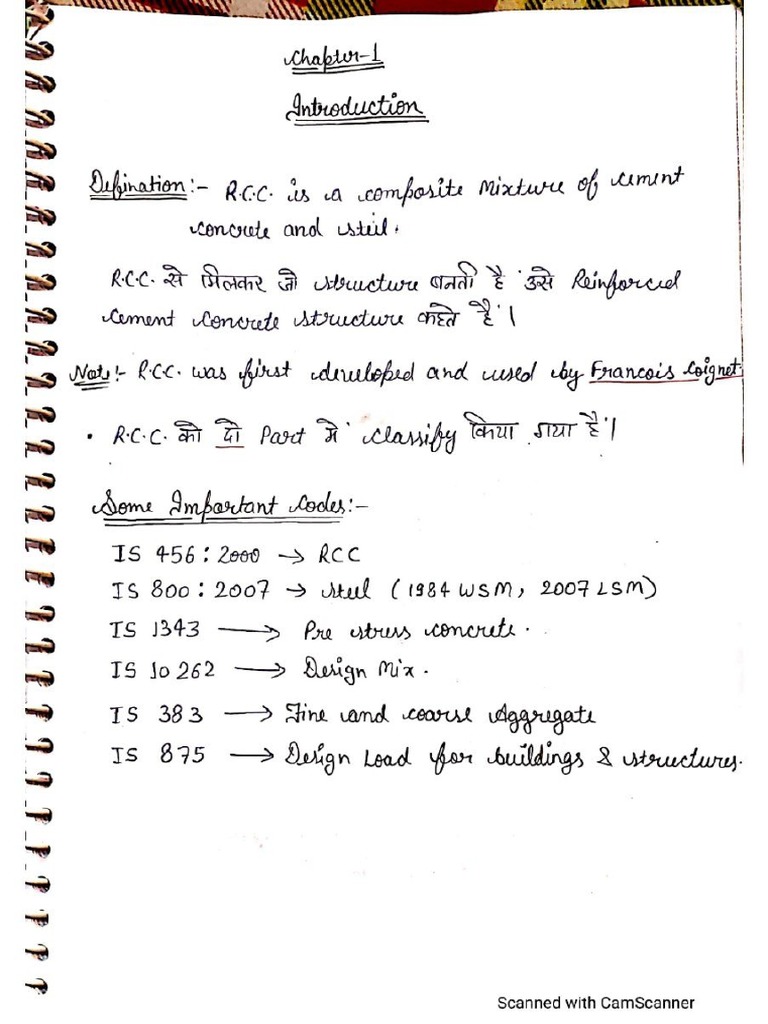 Chapter-1
Introduction
Defination:- R.C.C. is a composite mixture of cement
concrete and steel.
R.C.C. से मिलकर जो structure बनती है उसे Reinforced
cement concrete structure कहते हैं।
Note:- R.C.C. was first developed and used by Francois Coignet.
• R.C.C. को दो Part में classify किया गया है।
Some Important Codes:-
IS 456:2000 → RCC
IS 800:2007 → steel (1984 WSM, 2007 LSM)
IS 1343 → Pre stress concrete.
IS 10262 → Design Mix.
IS 383 → Fine and coarse Aggregate
IS 875 → Design Load for buildings & structures.
Scanned with CamScanner